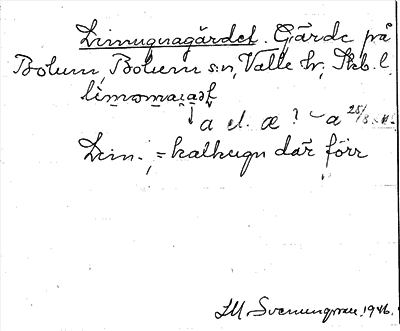 Limugnagärdet. Gärde på
Bolum, Bolum sn, Valle hr, Skb. l.
a el. æ? ~ a 25/3
Lim-, = kalkugn där förr
SM Svenungsson 1946.